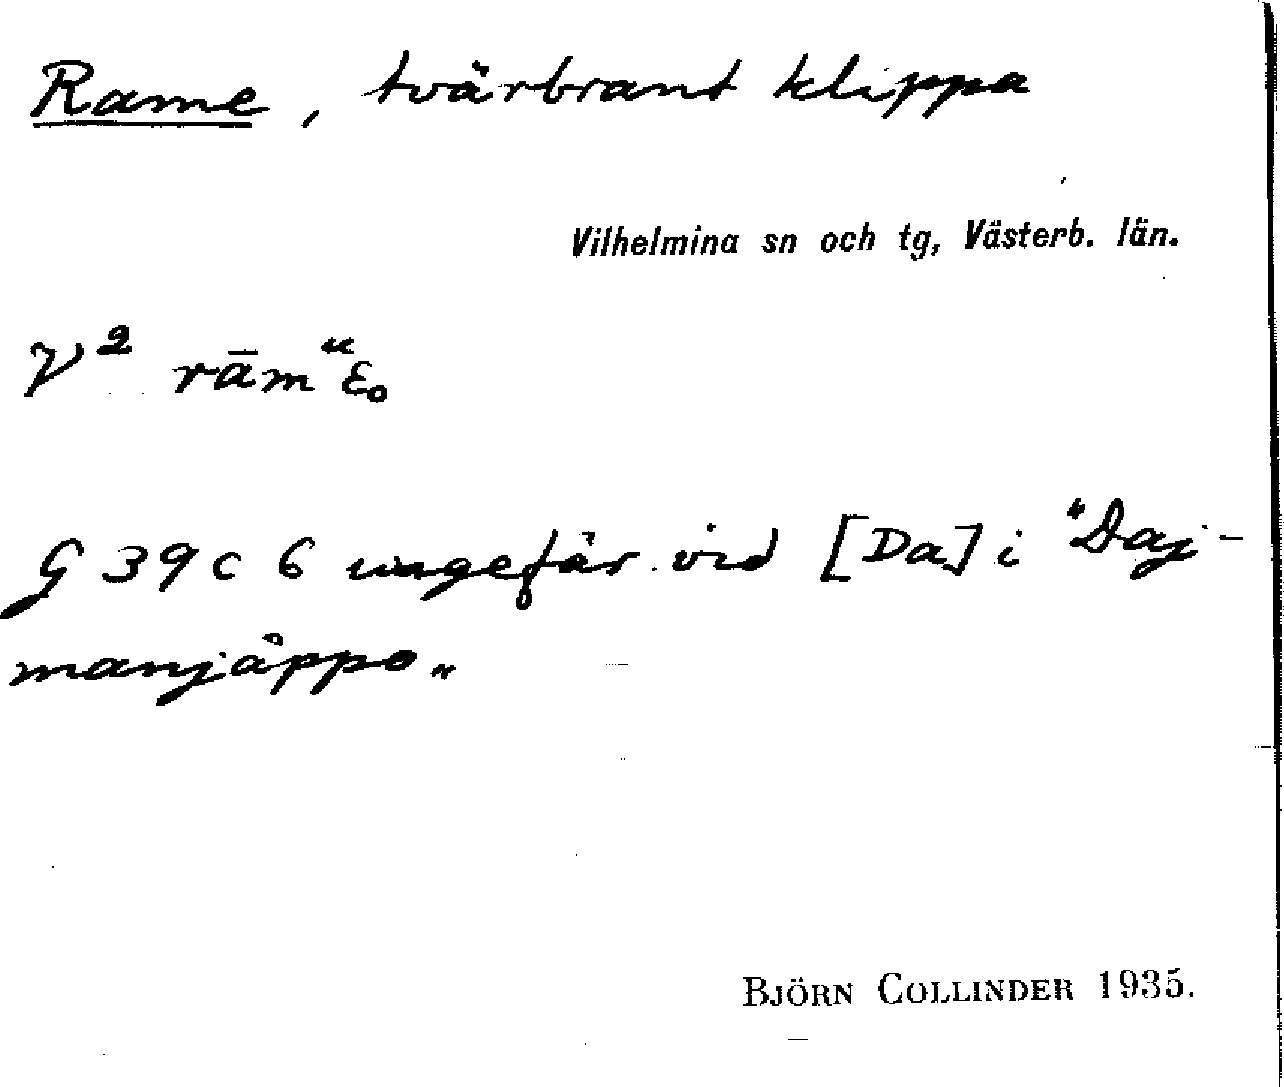 Rame, tvärbrant klippa
Vilhelmina sn och tg, Västerb. län.
V² rāmᵘɛ₀
G 39 c 6 ungefär vid [Da] i "Daj-
manjåppo"
BJÖRN COLLINDER 1935.